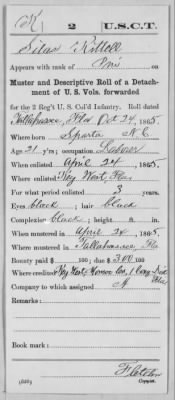 K | 2 | U.S.C.T.
Silas Kittell
Appears with rank of Pvt on
Muster and Descriptive Roll of a Detach-
ment of U. S. Vols. forwarded
for the 2 Reg't U. S. Col'd Infantry. Roll dated
Tallahassee, Fla Oct 24, 1865.
Where born Sparta N.C.
Age 21 y'rs; occupation Laborer
When enlisted April 24, 1865.
Where enlisted Key West, Fla
For what period enlisted 3 years.
Eyes black; hair black
Complexion black; height ft. in.
When mustered in April 24, 1865.
Where mustered in Tallahassee, Fla
Bounty paid $ 100; due $ 300 100
Where credited Key West Monroe Co., 1 Cong Dist
Fla
Company to which assigned A
Remarks:
Book mark:
Fletcher
Copyist.